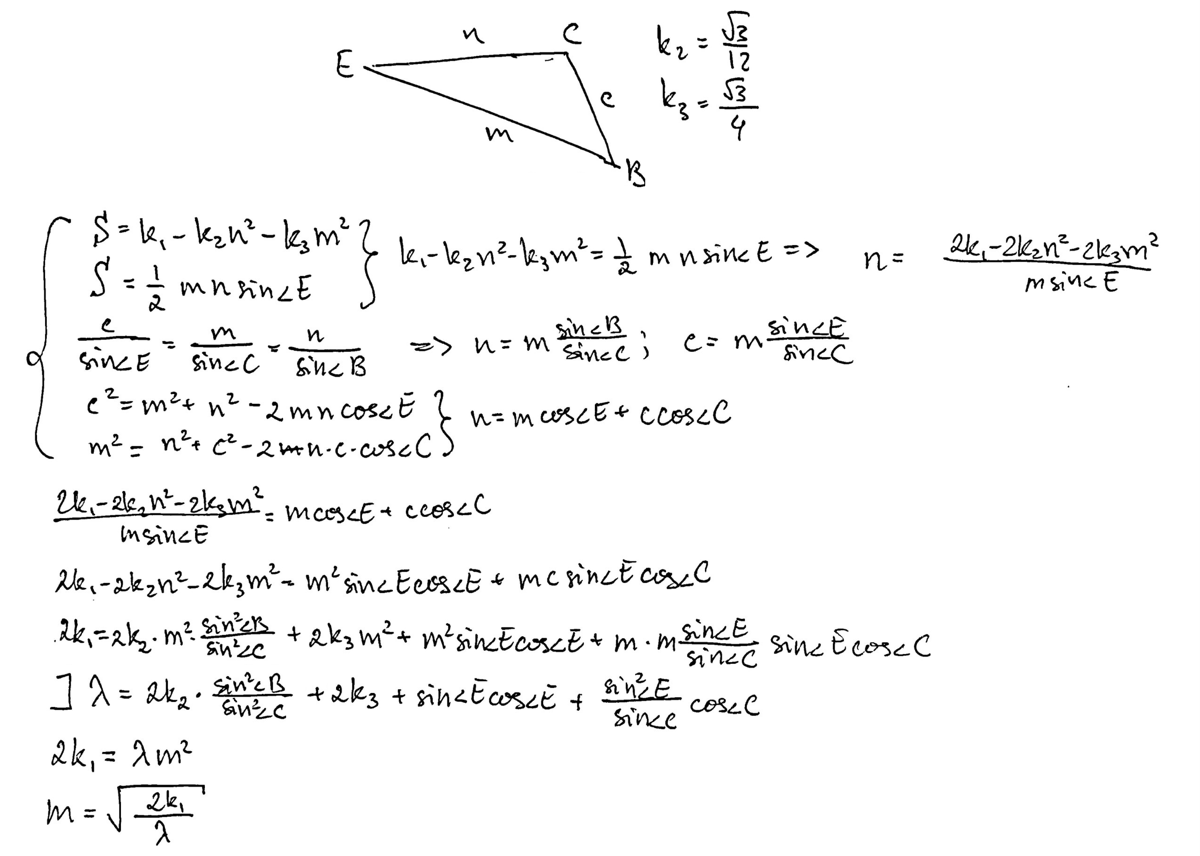 E n C c m B
k₂ = √3/12
k₃ = √3/4
S = k₁ - k₂n² - k₃m² } k₁ - k₂n² - k₃m² = 1/2 m n sin∠E => n = (2k₁ - 2k₂n² - 2k₃m²)/(m sin∠E)
S = 1/2 m n sin∠E
c/sin∠E = m/sin∠C = n/sin∠B => n = m sin∠B/sin∠C ; c = m sin∠E/sin∠C
c² = m² + n² - 2mn cos∠E } n = m cos∠E + c cos∠C
m² = n² + c² - 2 n·c·cos∠C
(2k₁ - 2k₂n² - 2k₃m²)/(m sin∠E) = m cos∠E + c cos∠C
2k₁ - 2k₂n² - 2k₃m² = m² sin∠E cos∠E + mc sin∠E cos∠C
2k₁ = 2k₂·m²·sin²∠B/sin²∠C + 2k₃m² + m² sin∠E cos∠E + m·m sin∠E/sin∠C sin∠E cos∠C
] λ = 2k₂·sin²∠B/sin²∠C + 2k₃ + sin∠E cos∠E + sin²∠E/sin∠C cos∠C
2k₁ = λm²
m = √(2k₁/λ)